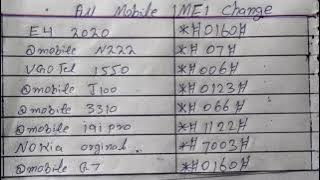 All Mobile IMEI Change
E4 2020 *#0160#
Qmobile N222 *#07#
VGO Tel 1550 *#006#
Qmobile J100 *#0123#
Qmobile 3310 *#066#
Qmobile i9i pro *#1122#
Nokia orginal *#7003#
Qmobile Q7 *#0160#